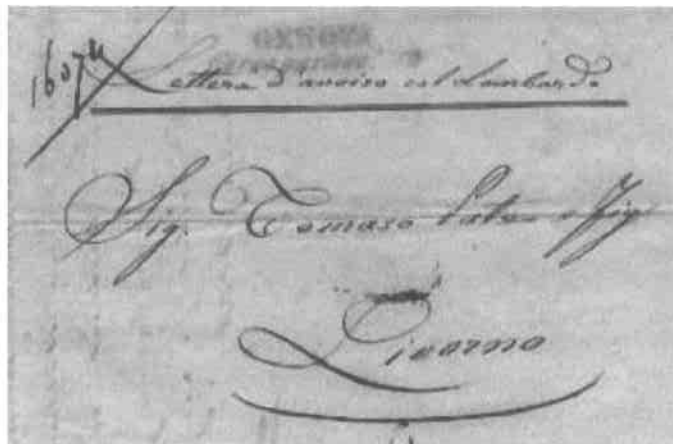 GENOVA
Lettera d'avviso col Lombardo
Sig. Tomaso e Figi
Livorno